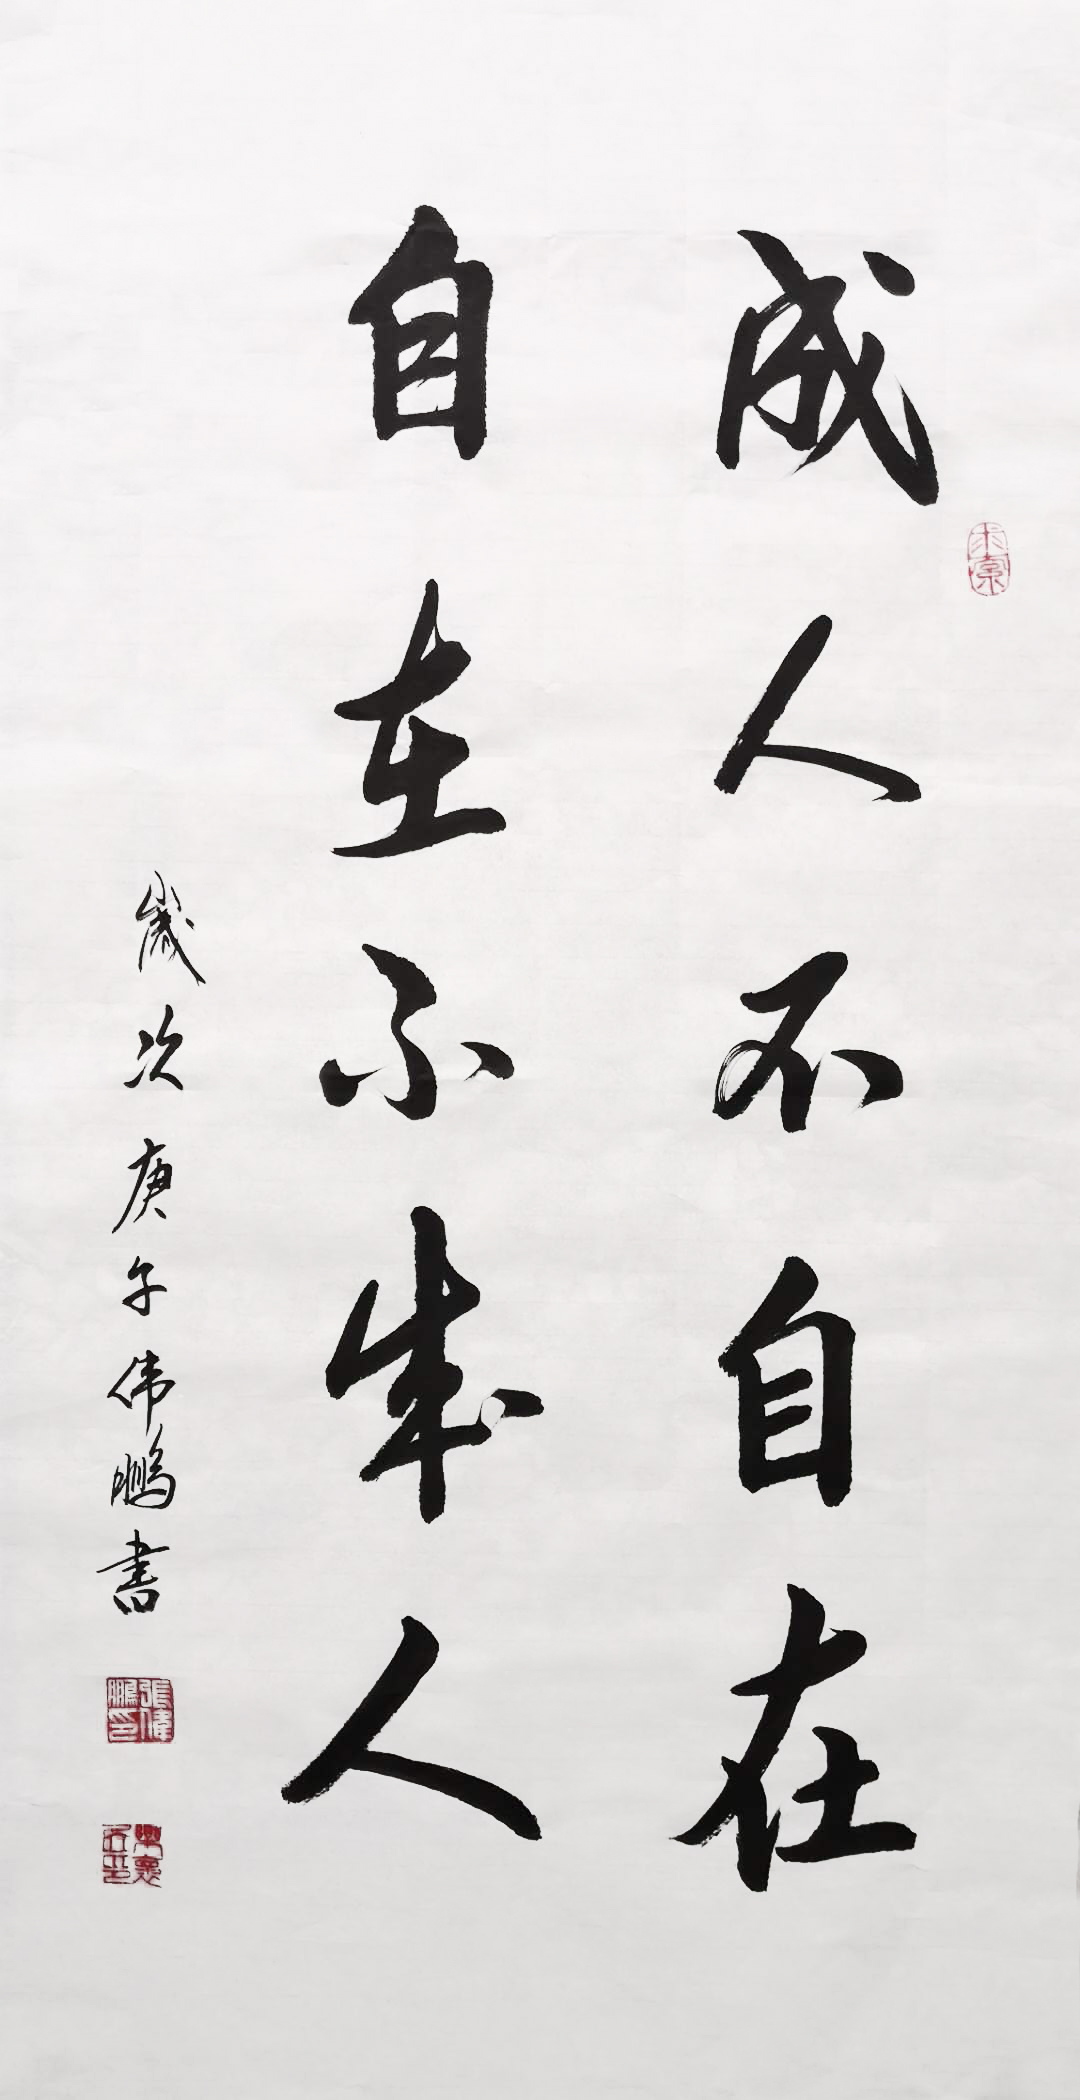 成人不自在
自在不成人
岁次庚子伟鹏书
張偉鵬印